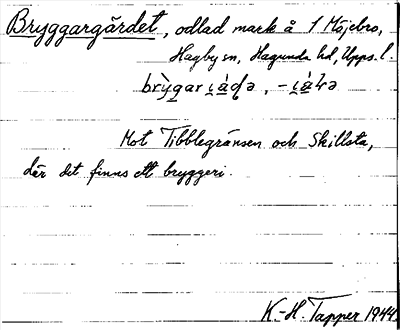 Bryggargärdet, odlad mark å 1 Möjebro,
Hagby sn, Hagunda hd, Upps. l.
Mot Tibblegränsen och Skillsta,
där det finns ett bryggeri.
K.-H. Tapper 1944.